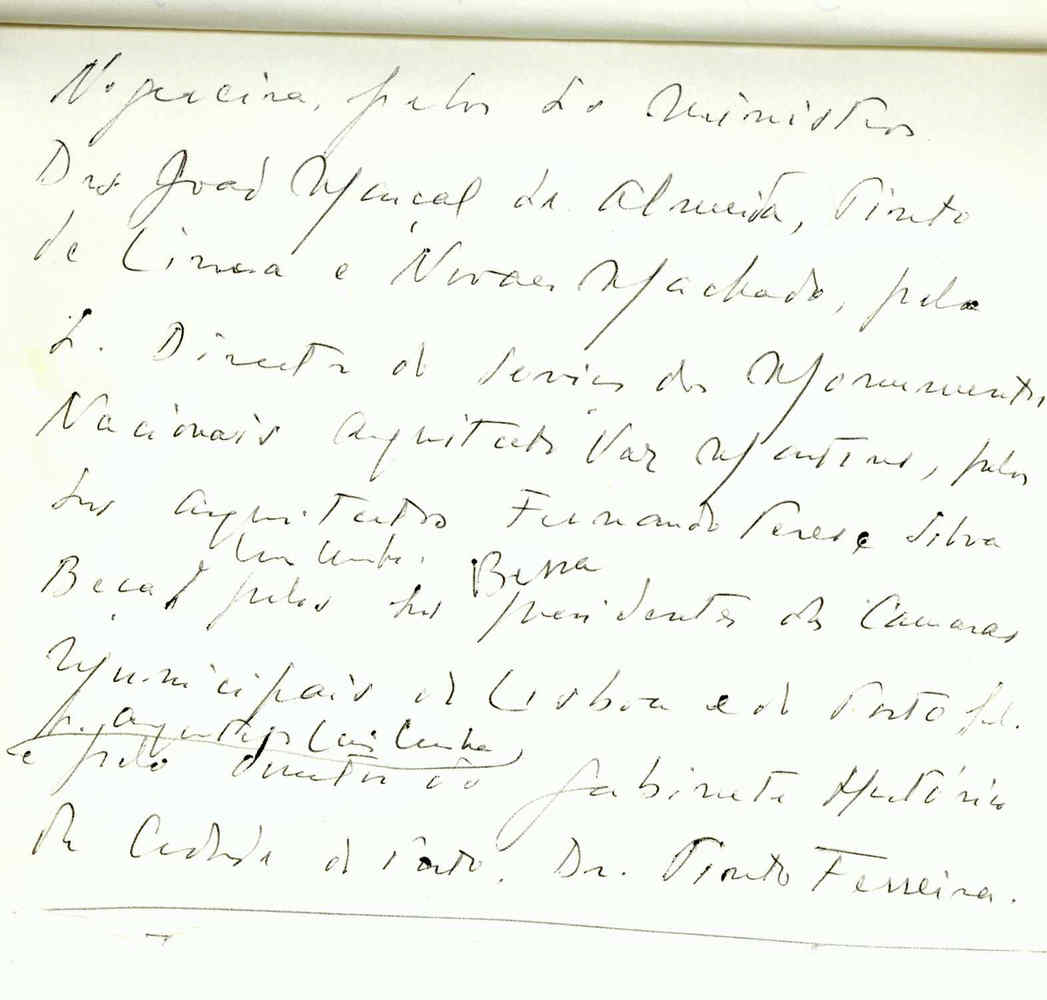 Nogueira, pelos Srs Ministros
Drs João Marçal de Almeida, Pinto
de Lima e Novaes Machado, pelo
S. Director de Serviços dos Monumentos
Nacionais arquitecto Vaz Martins, pelos
Srs arquitectos Fernando Peres e Silva
Luis Cunha. Bessa
Beça, pelos Srs presidentes das Camaras
Municipais de Lisboa e do Porto pel.
p. arquitecto Luis Cunha,
e pelo director do Gabinete Histórico
da Cidade do Porto. Dr. Pinto Ferreira.